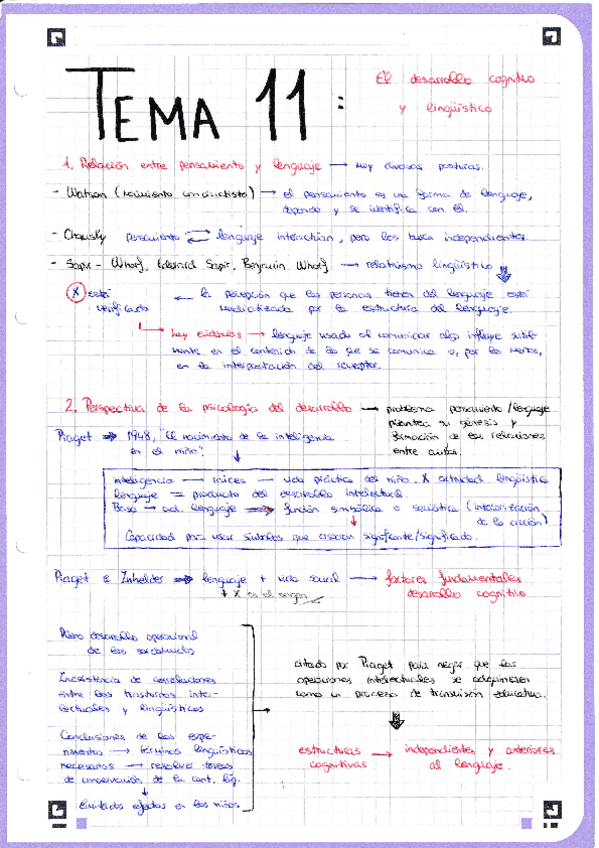 TEMA 11:
El desarrollo cognitivo
y lingüístico
1. Relación entre pensamiento y lenguaje → Hay diversas posturas.
- Watson (movimiento conductista) → el pensamiento es una forma de lenguaje,
depende y se identifica con él.
- Chomsky pensamiento ⇄ lenguaje interactúan, pero los busca independientes.
- Sapir - Whorf, Edward Sapir, Benjamin Whorf → relativismo lingüístico
X está ← la percepción que las personas tienen del lenguaje está
verificado mediatizada por la estructura del lenguaje.
hay evidencias → lenguaje usado al comunicar algo influye sutil-
mente en el contenido de lo que se comunica o, por lo menos,
en la interpretación del receptor.
2. Perspectiva de la psicología del desarrollo → problema pensamiento/lenguaje
plantea su génesis y
formación de las relaciones
entre ambos.
Piaget ⇒ 1948, "El nacimiento de la inteligencia
en el niño".
inteligencia → raíces → vida práctica del niño. X actividad lingüística
lenguaje = producto del desarrollo intelectual
Base → adq. lenguaje → función simbólica o semiótica (interiorización
de la acción)
Capacidad para usar símbolos que asocian significante/significado.
Piaget & Inhelder ⇒ lenguaje + vida social → factores fundamentales
desarrollo cognitivo
X es el origen
desarrollo operacional
de los sordomudos
Inexistencia de correlaciones
entre los trastornos inte-
lectuales y lingüísticos
Conclusiones de los expe-
rimentos → términos lingüísticos
necesarios → resolver tareas
de conservación de la cant. líq.
limitados efectos en los niños
citado por Piaget para negar que las
operaciones intelectuales se adquiriesen
como un proceso de transmisión educativa.
estructuras → independientes y anteriores
cognitivas al lenguaje.